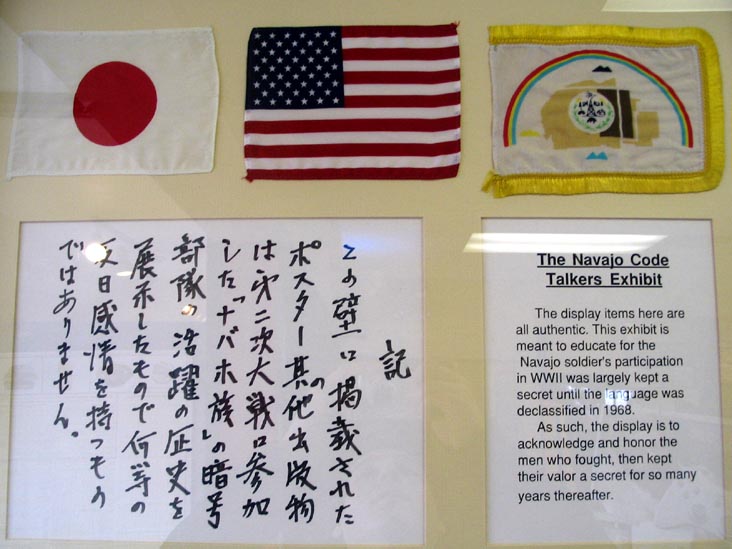 記
この壁に掲載された
ポスター其の他出版物
は第二次大戦に参加
した「ナバホ族」の暗号
部隊の活躍の歴史を
展示したもので何等の
反日感情を持つもの
ではありません。
The Navajo Code
Talkers Exhibit
The display items here are
all authentic. This exhibit is
meant to educate for the
Navajo soldier's participation
in WWII was largely kept a
secret until the language was
declassified in 1968.
As such, the display is to
acknowledge and honor the
men who fought, then kept
their valor a secret for so many
years thereafter.